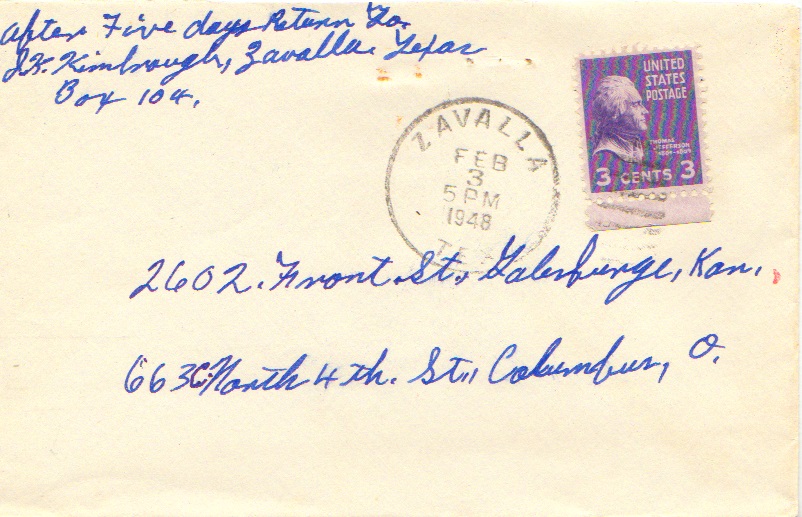 After Five days Return To.
J.K. Kimbrough, Zavalla. Texas
Box 104.
ZAVALLA
FEB
3
5 PM
1948
TEX
UNITED
STATES
POSTAGE
THOMAS
JEFFERSON
1801-1809
3 CENTS 3
2602. Front. St., Galesburge, Kan.
North 4th. St., Columbus, O.